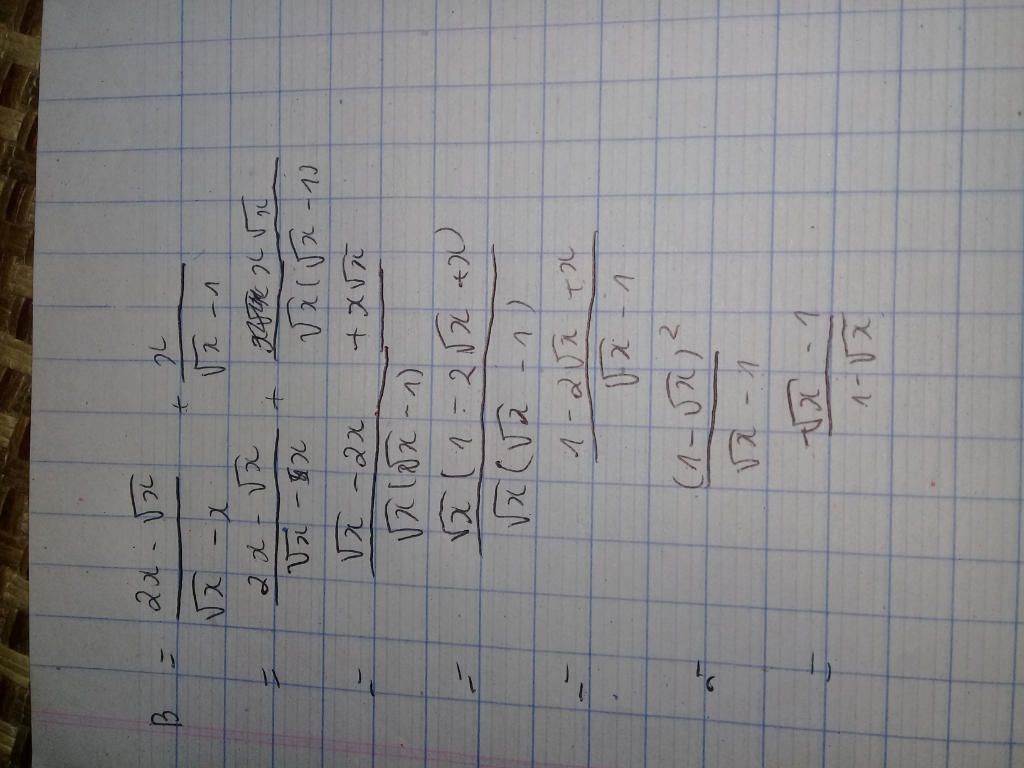 B = (2x - √x)/(√x - x) + x/(√x - 1)
= (2x - √x)/(√x - x) + x√x/(√x(√x - 1))
= (√x - 2x + x√x)/(√x(√x - 1))
= √x(1 - 2√x + x)/(√x(√x - 1))
= (1 - 2√x + x)/(√x - 1)
= (1 - √x)²/(√x - 1)
= (√x - 1)/(1 - √x)